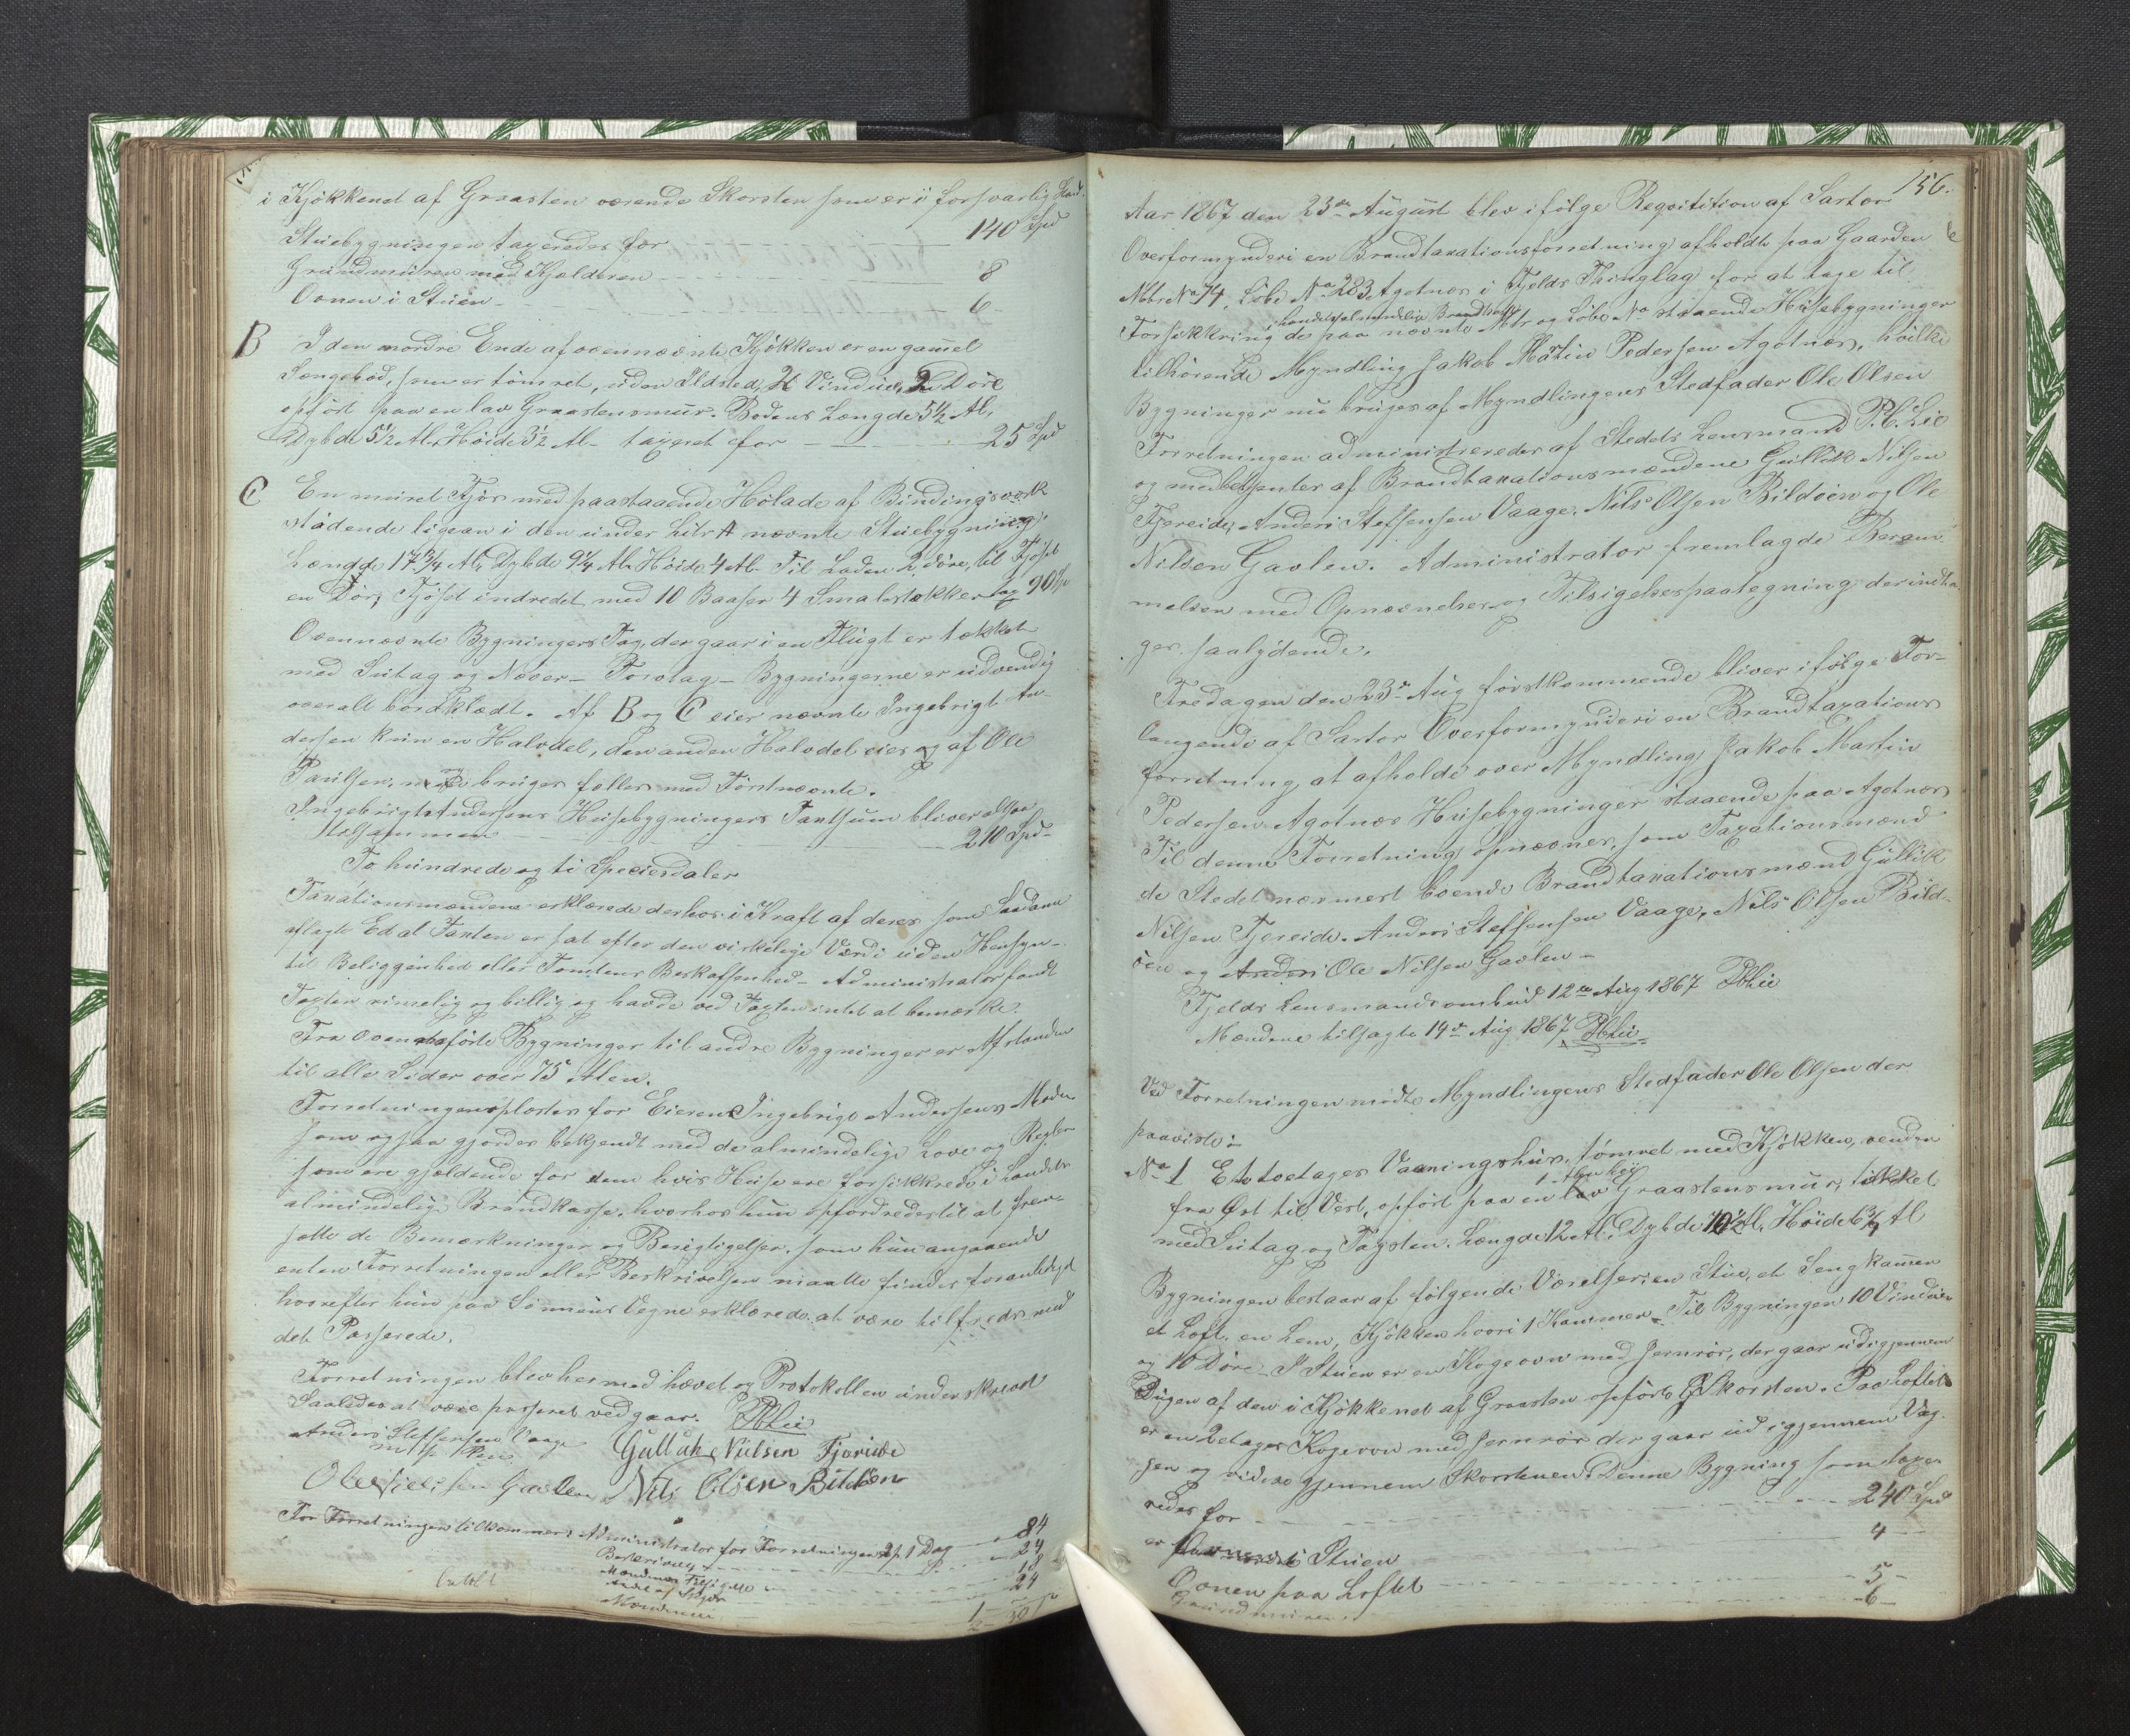 i Kjøkkenet af Graasten værende Skorsten som er i forsvarlig Stand.
Stuebygningen taxeredes for 140 Spd
Grundmuren med Kjælderen 8
Ovnen i Stuen 6
B I den nordre Ende af ovennævnte Kjøkken er en gammel
Sengebod, som er tømret, uden Ildsted, 2 Vinduer, 2 Døre
opført paa en lav Graastensmuur. Bodens Længde 5½ Al,
Dybde 5½ Al. Høide 3½ Al. taxeret for 25 Spd
C En muret Fjøs med paastaaende Hølade af Bindingsværk
stødende ligean i den under Litr A nævnte Stuebygning.
Længde 17¾ Al, Dybde 9¼ Al. Høide 4 Al. Til Laden 2 Døre, til Fjøset
en Dør, Fjøset indredet med 10 Baaser 4 Smalestokker 90
Ovennævnte Bygningers Tag, der gaar i en Flugt er tækket
med Sutag og Næver- Torvtag- Bygningerne er udvendig
overalt bordklædt. Af B og C eier nævnte Ingebrigt An-
dersen kun en Halvdel, den anden Halvdel eies af Ole
Paulsen, bruges fælles med Førstnævnte.
Ingebrigt Andersens Huusebygningers Taxtsum bliver altsaa
tilsammen 210 Spd
To hundrede og ti Speciesdaler
Taxationsmændene erklærede derhos i Kraft af deres som Saadanne
aflagte Ed at Taxten er sat efter den virkelige Værdi uden Hensyn
til Beliggenhed eller Tomtens Beskaffenhed- Administrator fandt
Taxten rimelig og billig og havde ved Taxten intet at bemærke.
Fra ovenanførte Bygninger til andre Bygninger er Afstanden
til alle Sider over 75 Alen.
Forretningen oplæstes for Eieren Ingebrigt Andersens Moder
som ogsaa gjordes bekjendt med de almindelige Love og Regler
som ere gjældende for dem hvis Huse ere forsikkrede i Landets
almindelige Brandkasse, hvorhos hun opfordredes til at frem-
sætte de Bemærkninger og Berigtigelser, som hun angaaende
enten Forretningen eller Beskrivelsen maatte finde foranlediget
hvorefter hun paa Sønnens Vegne erklærede at være tilfreds med
det Passerede.
Forretningen blev hermed hævet og Protokollen underskrevet
Saaledes at være passeret vedgaar. PLie
Anders Steffensen Vaage
m. f. P. Gullak Nielsen Fjæreide
Ole Nielsen Gavlen Nils Olsen Bildøen
For Forretningen tilkommer: Administrator for Forretningen 1 Dag 84
Beskrivelse 24
Mændenes Tilsigelse 18
24
Mændene 1
betalt
156.
Aar 1867 den 23de August blev ifølge Reqvisition af Sartor
Overformynderi en Brandtaxationsforretning afholdt paa Gaarden
Mtr. No 74, Løbe No 283 Agotnæs i Fjelds Thinglag for at tage til
i Landets almindelige Brandkasse
Forsikkring de paa nævnte Mtr og Løbe No staaende Husebygninger
tilhørende Myndling Jakob Martin Pedersen Agotnæs, hvilke
Bygninger nu bruges af Myndlingens Stedfader Ole Olsen
Forretningen administreredes af Stedets Lensmand P. C. Lie
og medbetjentes af Brandtaxationsmændene Gullik Nilsen
Fjereide, Anders Steffensen Vaage, Nils Olsen Bildøen og Ole
Nilsen Gavlen. Administrator fremlagde Beram-
melsen med Opnævnelses og Tilsigelsespaategning der indta
ges saalydende.
Fredagen den 23de Aug førstkommende bliver ifølge For-
langende af Sartor Overformynderi en Brandtaxations
forretning at afholde over Myndling Jakob Martin
Pedersen Agotnæs Husebygninger staaende paa Agotnæs
Til denne Forretning opnævnes, som Taxationsmænd
de Stedet nærmest boende Brandtaxationsmænd Gullik
Nilsen Fjereide. Anders Steffensen Vaage, Nils Olsen Bild-
øen og Anders Ole Nilsen Gavlen-
Fjelds Lensmandsombud 12te Aug 1867 PLie
Mændene tilsagte 14de Aug 1867 PLie
Ved Forretningen mødte Myndlingens Stedfader Ole Olsen der
paaviste:
No 1 Et toetages Vaaningshus, tømret med Kjøkken, vender
1 Alen høi
fra Øst til Vest, opført paa en lav Graastensmur, tækket
med Sutag og Tagsten. Længde 12 Al. Dybde 10½ Al. Høide 6¾ Al
Bygningen bestaar af følgende Værelser: en Stue, et Sengkammer
et Loft, en Lem, Kjøkken hvori 1 Kammer. Til Bygningen 10 Vinduer
og 10 Døre. I Stuen er en Kogeovn med Jernrør, der gaar ud igjennem
Pigen af den i Kjøkkenet af Graasten opførte Skorsten. Paa Loftet
er en 2 etages Kogeovn med Jernrør der gaar ud igjennem Væg-
gen og videre gjennem Skorstenen. Denne Bygning som taxe-
redes for 240 Spd
Ovnen i Stuen 4
Ovnen paa Loftet 5
Grundmuren 6